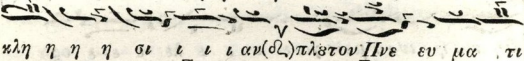 κλη η η η σι ι ι ι αν(ȣ) πλȣτον Πνε ευ μα τι